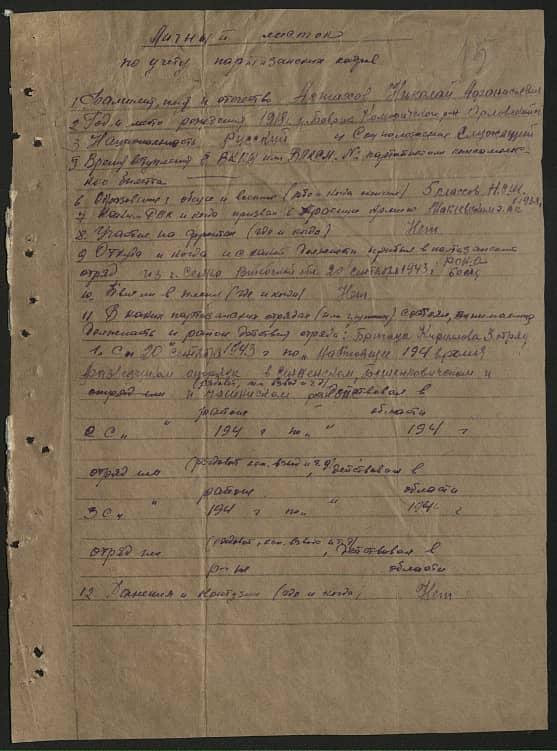 Личный листок
по учету партизанских кадров
1. Фамилия, имя и отчество Николай Афанасьевич
2. Год и место рождения 1918 г.
3. Национальность Русский и Соцположение Служащий
5. Время вступления в ВКП(б) или ВЛКСМ. № партийного комсомоль-
кого билета
6. Образование: общее и военное (где и когда) 5 классов
7. Каким РВК и когда призван в Красную Армию
8. Участие на фронтах (где и когда) Нет
9. Откуда и когда и с какой должности прибыл в партизанский
отряд из г. Сенно 20 сентября 1943 г. РОНА боец
10. Был ли в плену (где и когда) Нет
11. В каких партизанских отрядах (или группах) состоял, занимаемая
должность и район действия отряда: Бригада Кириллова 3 отряд
1. С " 20 " сентября 1943 г по " настоящее 194 время
в Сенненском, Бешенковичском и
отряд им (рядовой, ком. взвод и т.д) действовал в
район области
2 С " " 194 г по " " 194 г
отряд им (рядовой, ком. взвод и т.д), действовал в
район области
3 С " " 194 г по " " 194 г
отряд им (рядовой, ком. взвод и т.д), действовал в
р-не области
12 Ранения и контузии (где и когда) Нет